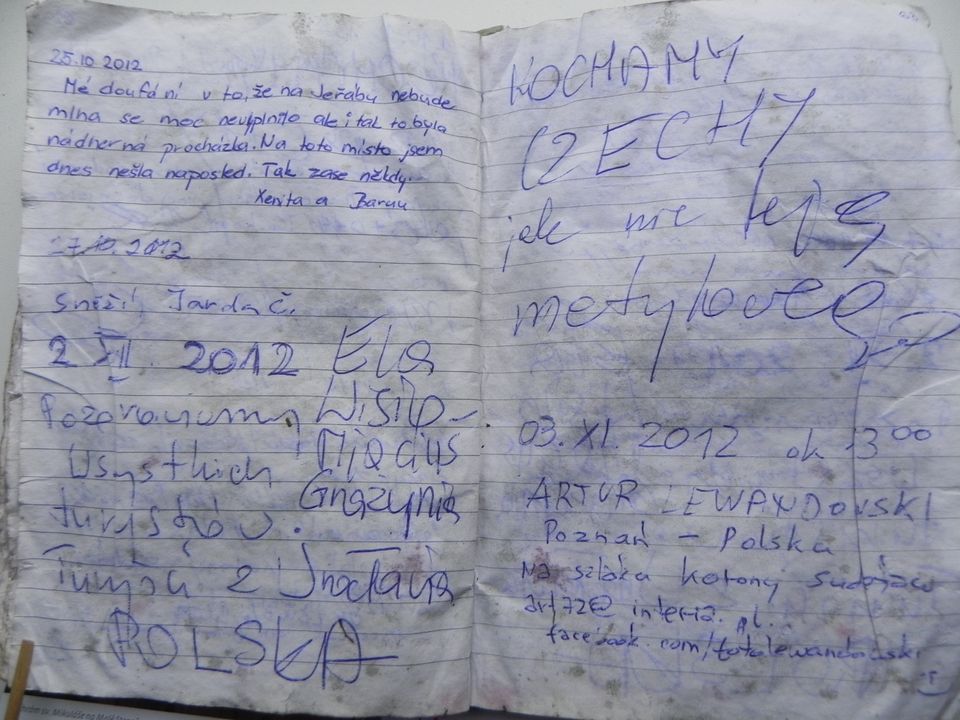 25.10.2012
Mé doufání v to, že na Jeřábu nebude
mlha se moc nevyplnilo ale i tak to byla
nádherná procházka. Na toto místo jsem
dnes nešla naposled. Tak zase někdy.
Xenita a
27.10.2012
Sněží! Jarda Č.
2 XI. 2012 Ela
Pozdrawiamy
wszystkich
turystów.
Grażynia
POLSKA
KOCHAMY
CZECHY
jak nie leją
metylowca
03. XI. 2012 ok 13 00
ARTUR LEWANDOWSKI
Poznań - Polska
Na szlaku Korony Sudetów
art72@interia.pl
facebook.com/totolewandowski